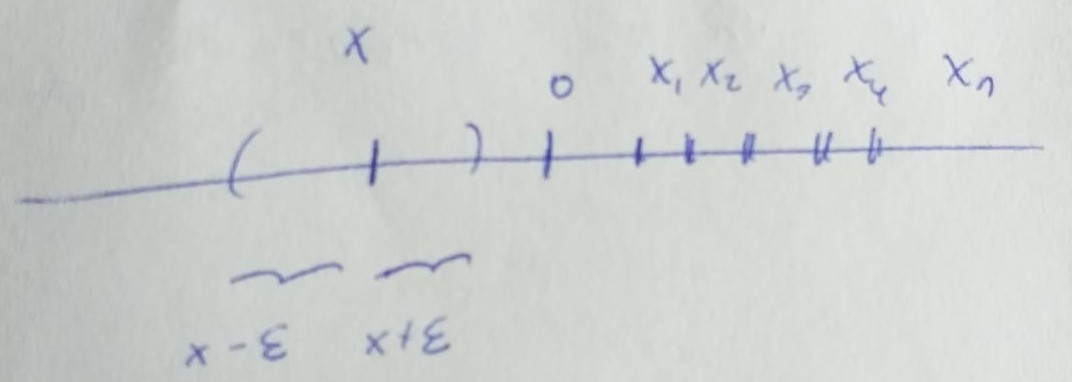 x
0 x₁ x₂ x₃ x₄ xₙ
( )
x-ε x+ε